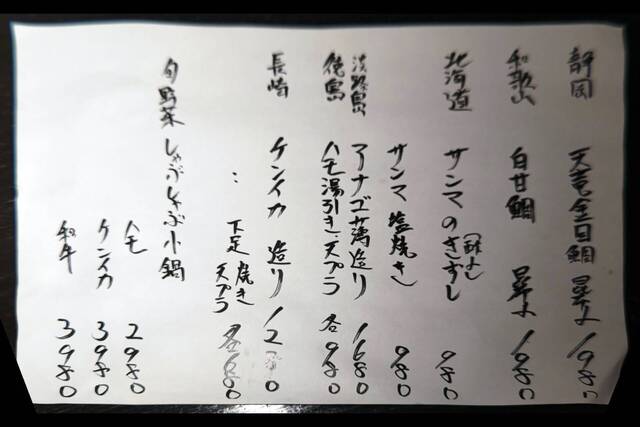 静岡 天竜金目鯛 昆〆 1980
和歌山 白甘鯛 昆〆 1980
北海道 サンマのきずし (酢よし) 980
サンマ 塩焼き 980
淡路島 アナゴ薄造り 1680
徳島 ハモ湯引き、天プラ 各980
長崎 ケンイカ 造り
: 下足 焼き 天プラ 各680
旬野菜しゃぶしゃぶ小鍋
ハモ 2980
ケンイカ 3980
和牛 3980